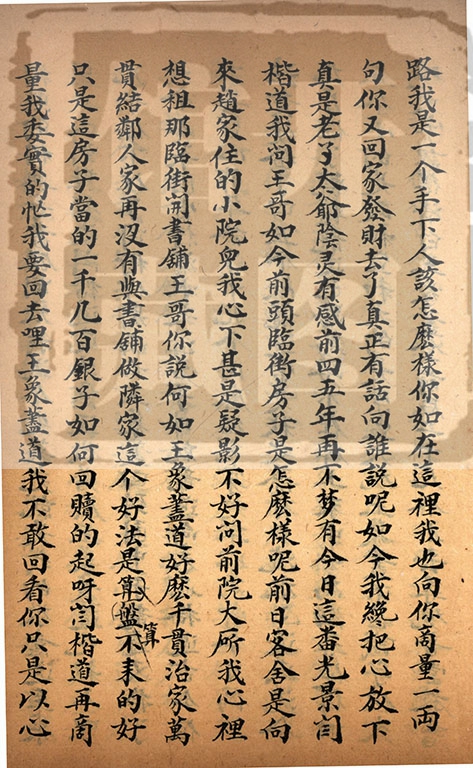 路我是一个手下人該怎麽樣你如在這裡我也向你啇量一両
句你又回家發財去了真正有話向誰說呢如今我纔把心放下
真是老了太爺陰灵有感前四五年再不梦有今日這畨光景闫
楷道我问王哥如今前頭臨街房子是怎麽樣呢前日客舍是向
來趙家住的小院児我心下甚是疑影不好问前院大所我心裡
想租那臨街開書鋪王哥你說何如王象藎道好麽千貫治家萬
貫結鄰人家再没有與書鋪做隣家這个好法是算盤算不耒的好
只是這房子當的一千几百銀子如何回贖的起呀闫楷道再啇
量我委實的忙我要回去哩王象藎道我不敢回看你只是以心